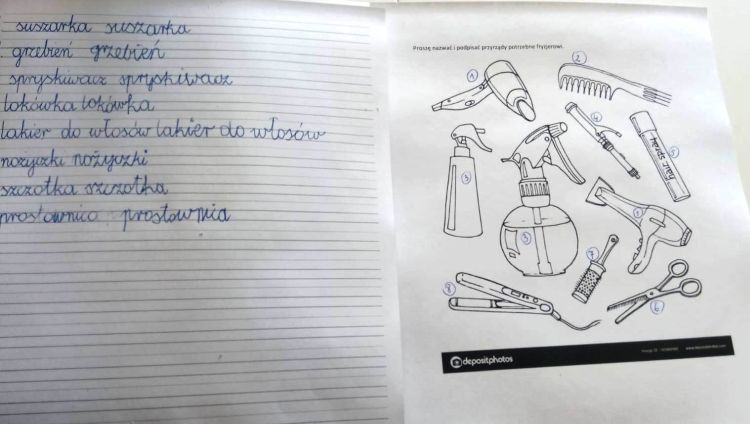 suszarka suszarka
grzebień grzebień
spryskiwacz spryskiwacz
lokówka lokówka
lakier do włosów lakier do włosów
nożyczki nożyczki
szczotka szczotka
prostownica prostownia
Proszę nazwać i podpisać przyrządy potrzebne fryzjerowi.
1
2
3
4
5
hair spray
3
1
7
8
6
depositphotos